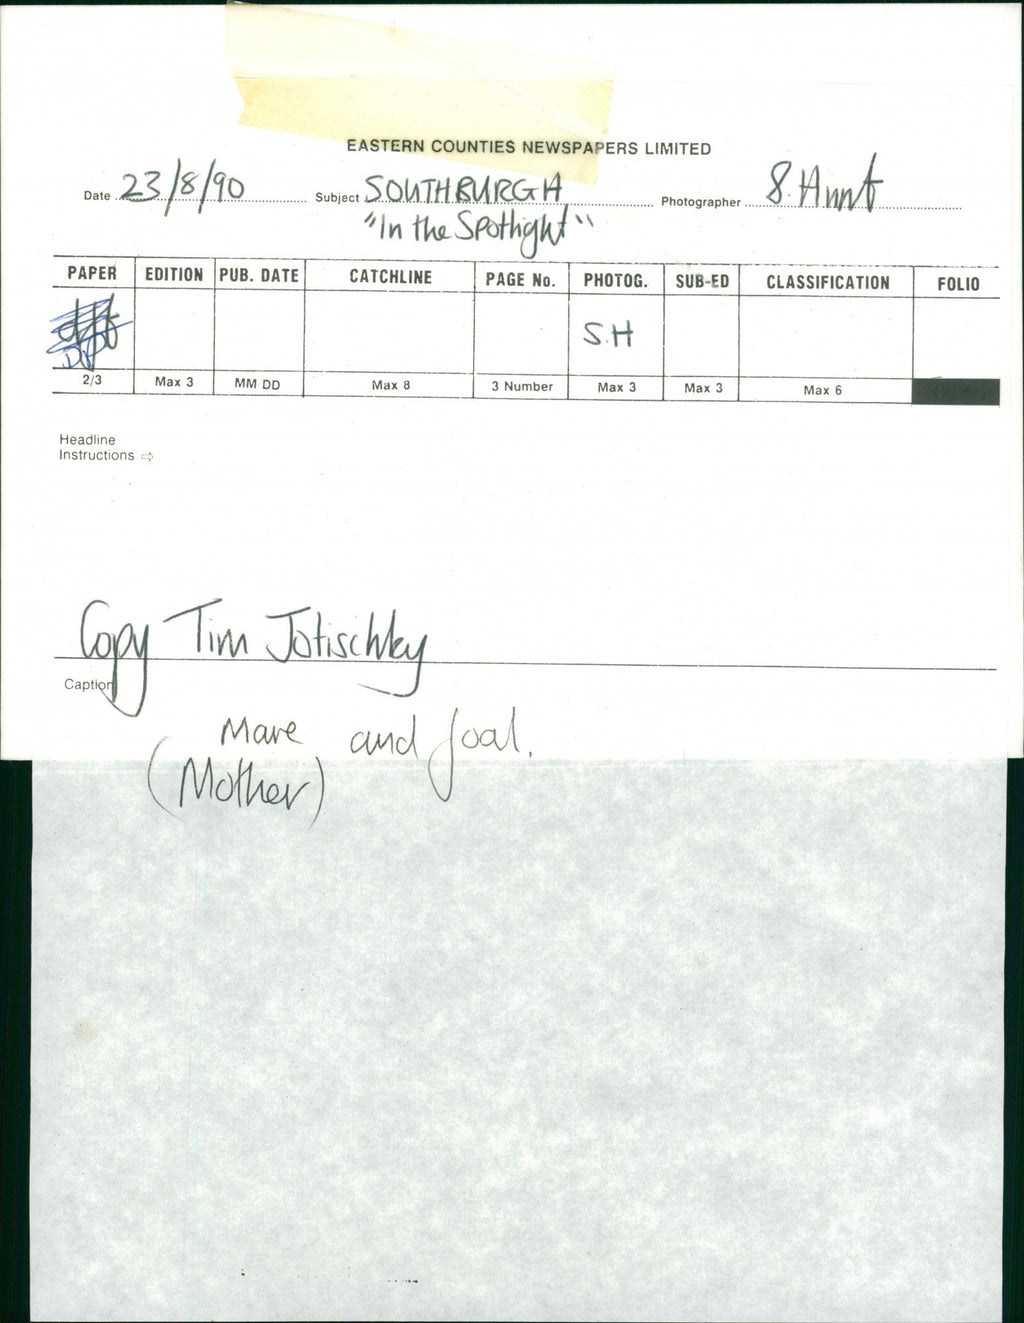 EASTERN COUNTIES NEWSPAPERS LIMITED
Date 23/8/90 Subject SOUTHBURGH Photographer S. Hunt
"In the Spotlight"
PAPER EDITION PUB. DATE CATCHLINE PAGE No. PHOTOG. SUB-ED CLASSIFICATION FOLIO
DP S.H
2/3 Max 3 MM DD Max 8 3 Number Max 3 Max 3 Max 6
Headline
Instructions ⇨
Copy Tim Jotischky
Caption
Mare and foal.
(Mother)